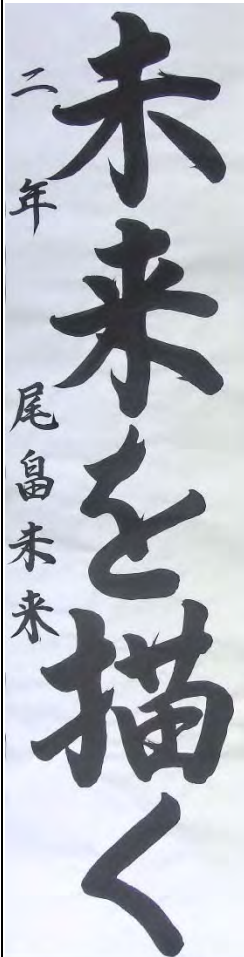 未来を描く
二年 尾畠未来